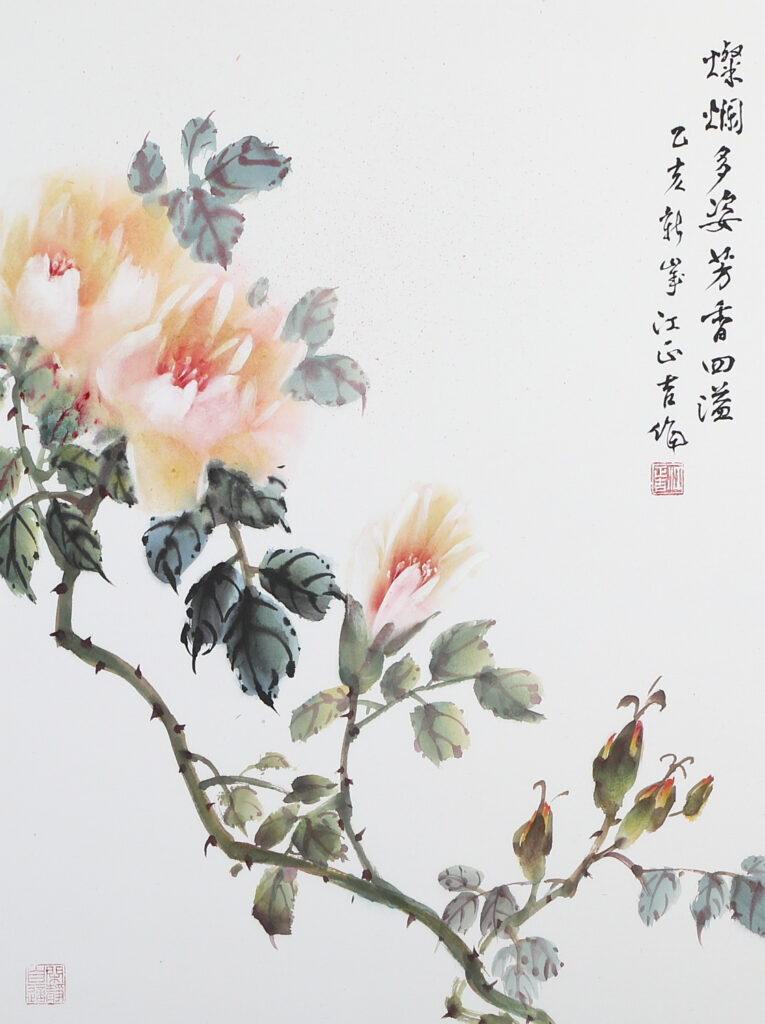 燦爛多姿芳香四溢
乙亥新峯江正吉